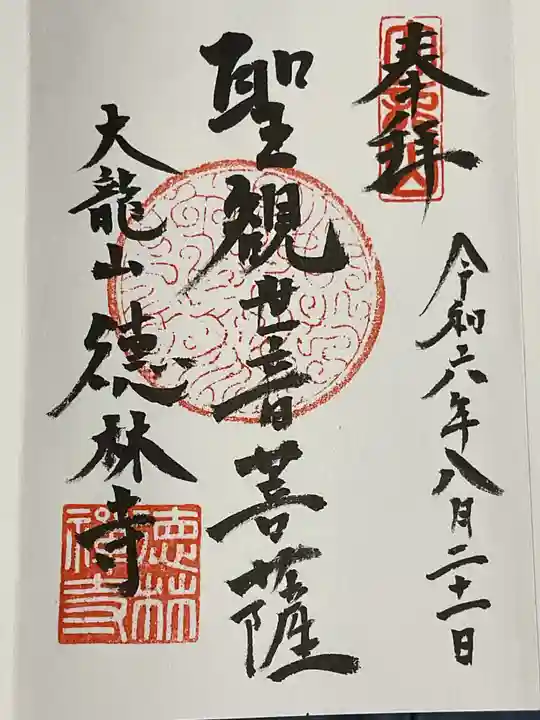 奉拝
令和六年八月二十一日
聖観世音菩薩
大龍山徳林寺
徳林禅寺